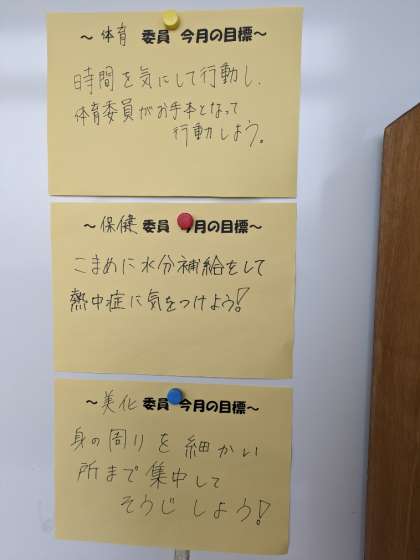 ～ 体育 委員 今月の目標～
時間を気にして行動し、
体育委員がお手本となって
行動しよう。
～保健 委員 今月の目標～
こまめに水分補給をして
熱中症に気をつけよう!
～美化 委員 今月の目標～
身の周りを細かい
所まで集中して
そうじしよう!